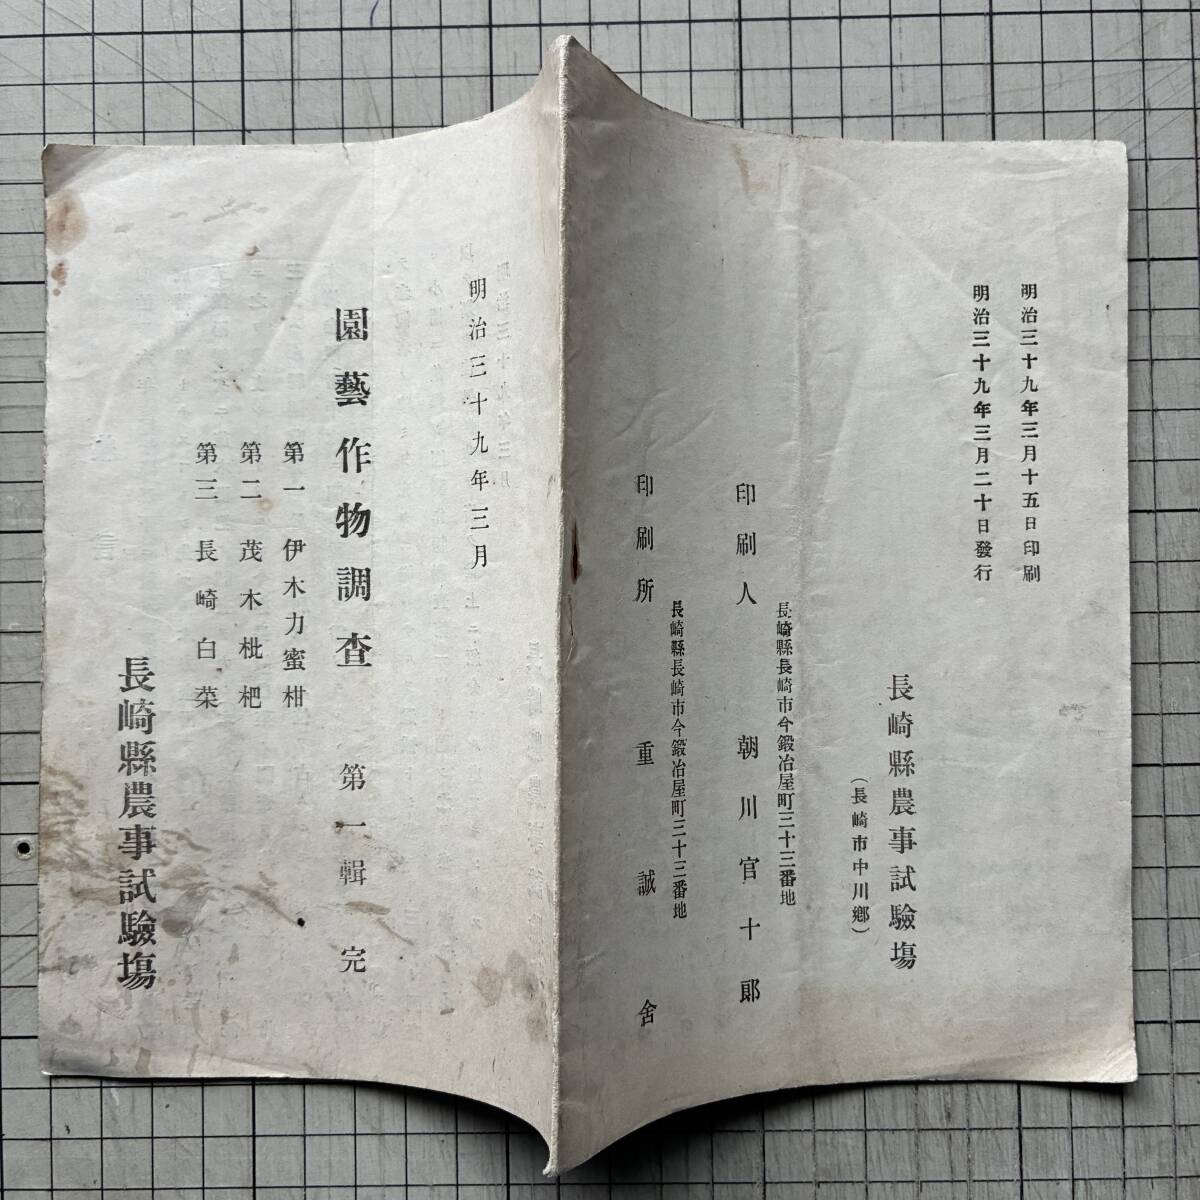 明治三十九年三月十五日印刷
明治三十九年三月二十日發行
長崎縣農事試驗塲
(長崎市中川鄕)
長崎縣長崎市今鍛冶屋町三十三番地
印刷人 朝川官十郞
長崎縣長崎市今鍛冶屋町三十三番地
印刷所 重誠舍
明治三十九年三月
園藝作物調査 第一輯 完
第一 伊木力蜜柑
第二 茂木枇杷
第三 長崎白菜
長崎縣農事試驗塲